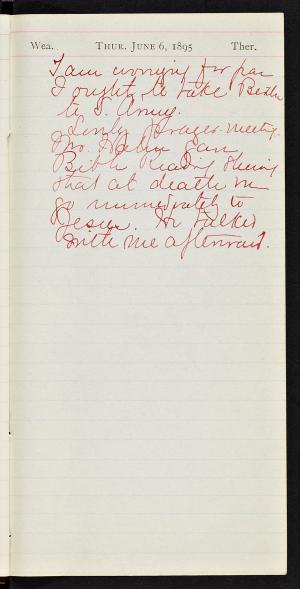 Wea. THUR. JUNE 6, 1895 Ther.
I am worrying for fear
I ought to take Bessie
to S. Army.
Lovely Prayer-meeting.
Mr. Haley gave
Bible Reading showing
that at death we
go immediately to
Jesus. He talked
with me afterward.